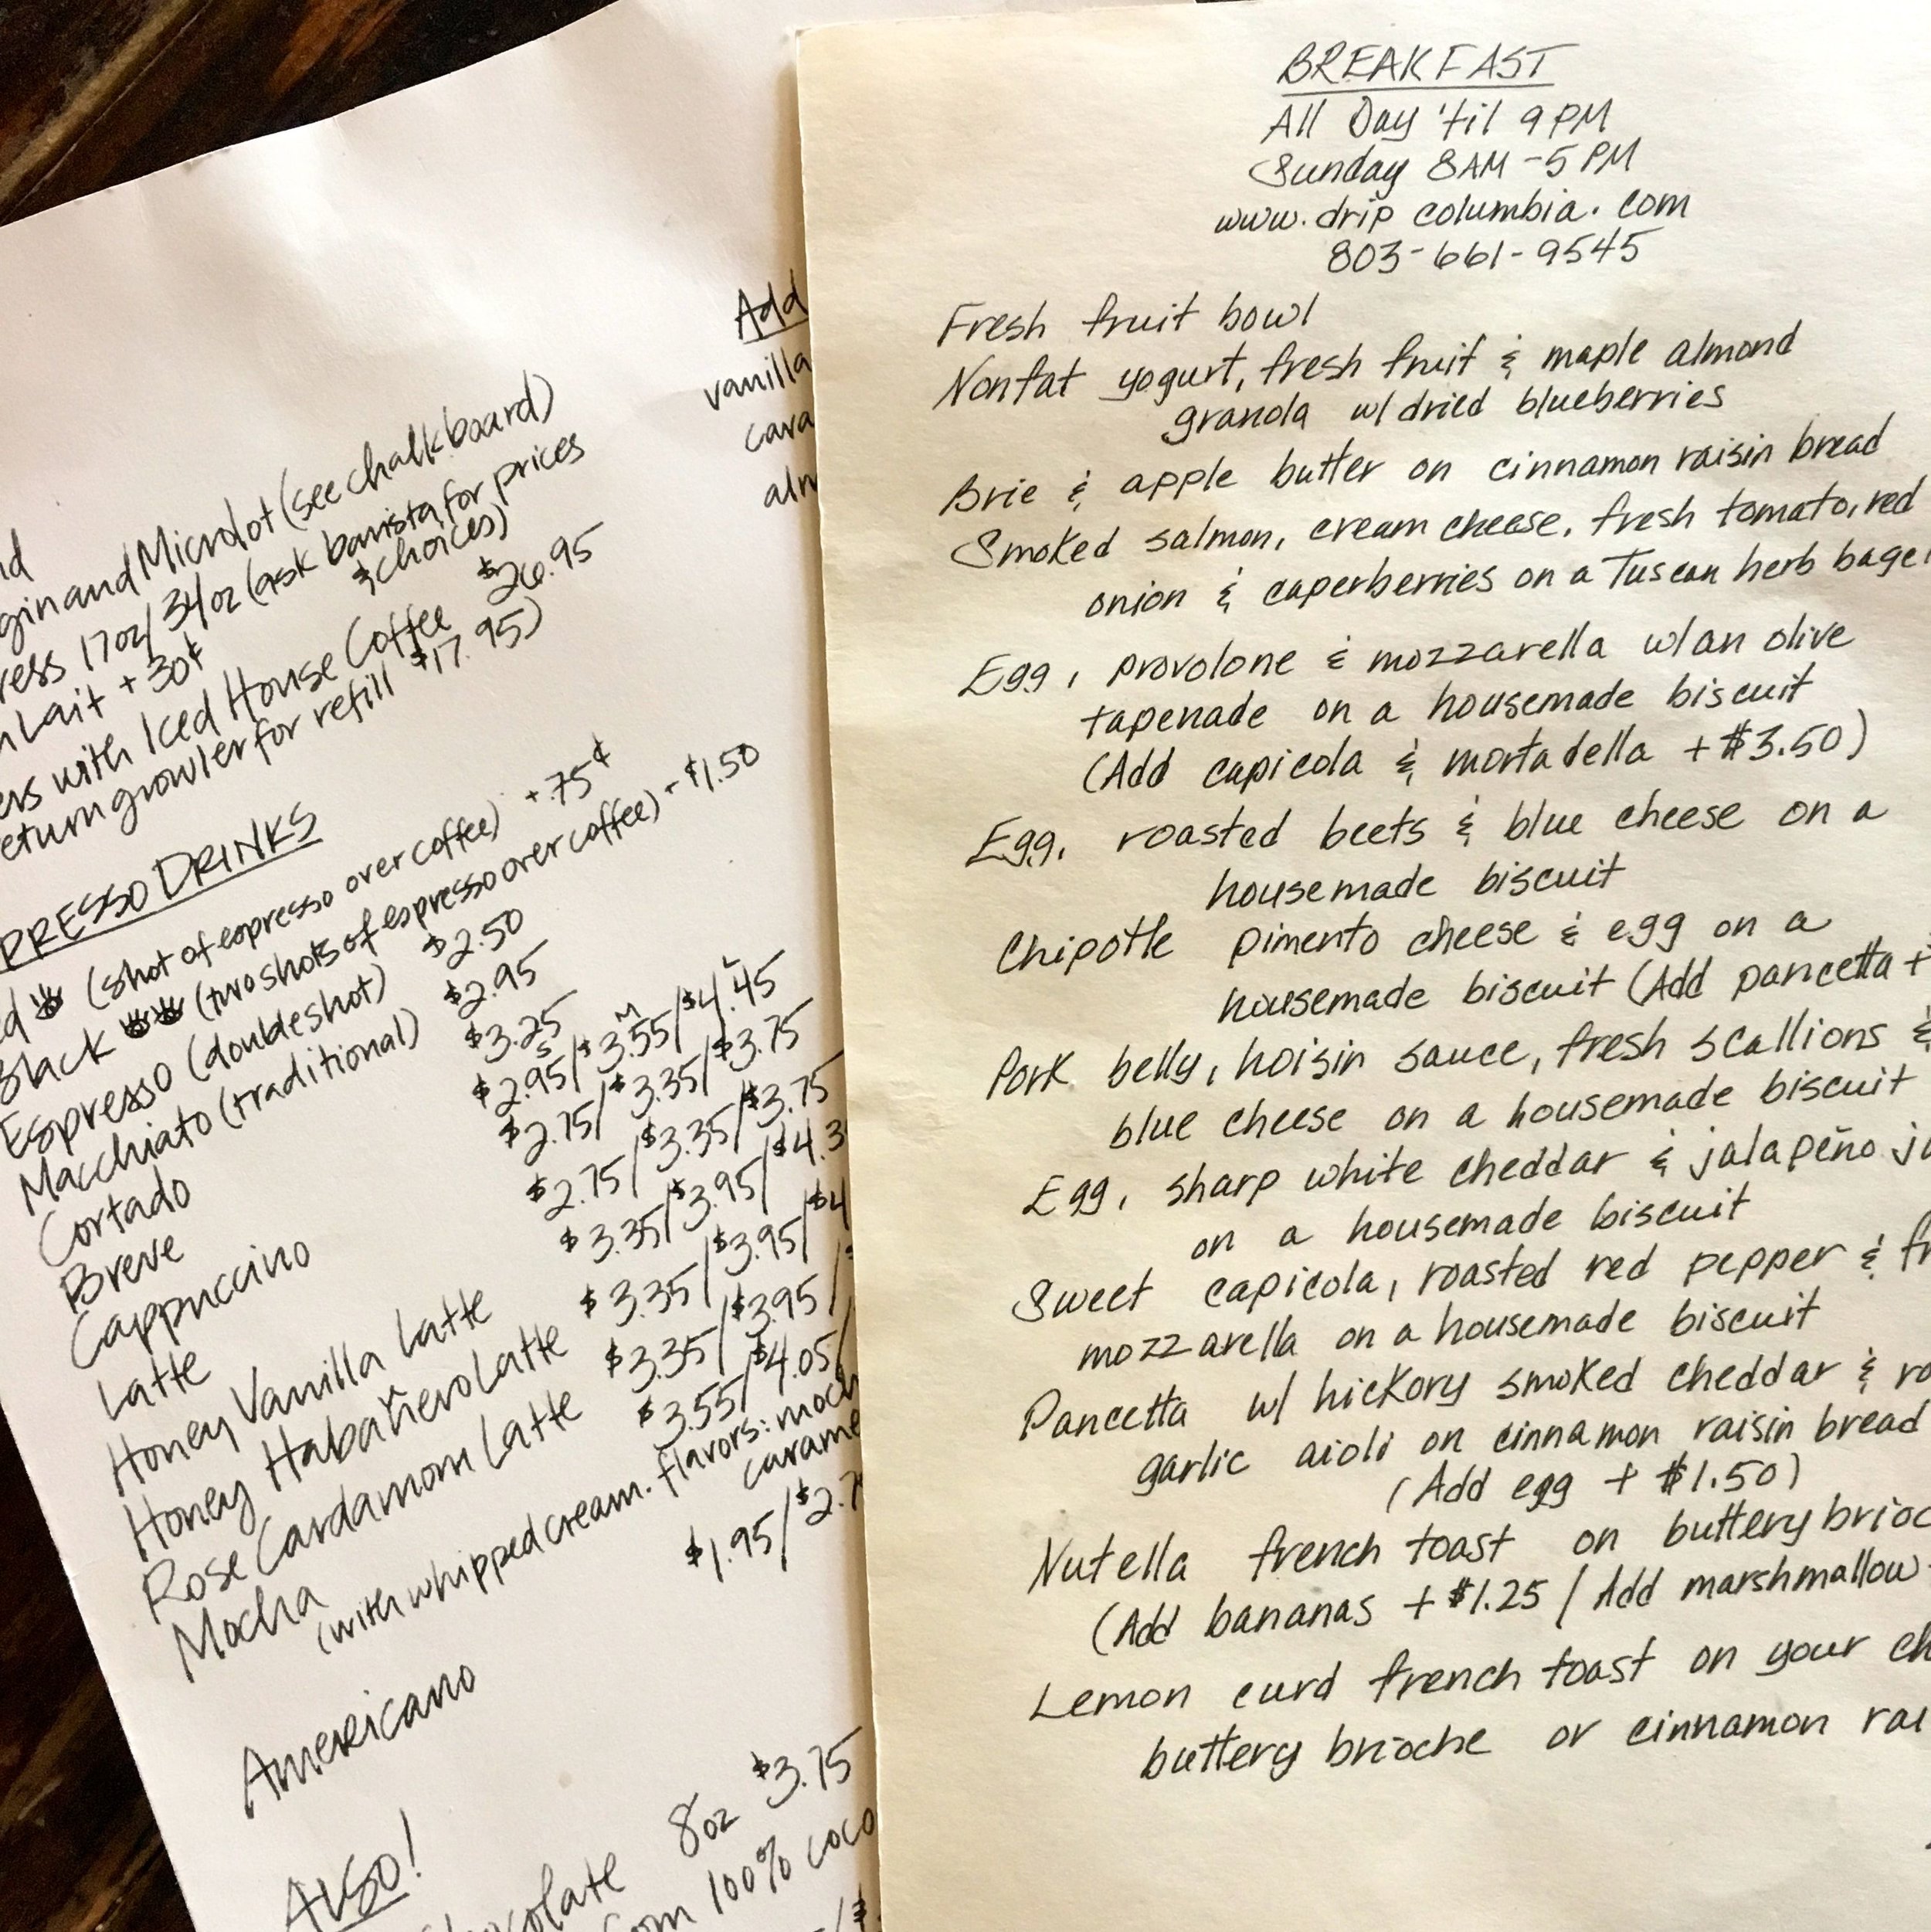 Add
vanilla
nd
gin and Microlot (see chalkboard)
ress 17oz/34oz (ask barista for prices
& choices)
Lait + 30¢
ers with Iced House Coffee $26.95
eturn growler for refill $17.95)
PRESSO DRINKS
ed (shot of espresso over coffee) + .75¢
Black (two shots of espresso over coffee) - $1.50
Espresso (doubleshot) $2.50
Macchiato (traditional) $2.95
Cortado $3.25
S M L
Breve $2.95/$3.55/$4.45
Cappuccino $2.75/$3.35/$3.75
Latte $2.75/$3.35/$3.75
Honey Vanilla Latte $3.35/$3.95/$4.3
Honey Habañero Latte $3.35/$3.95/$4
Rose Cardamom Latte $3.35/$3.95/
Mocha $3.55/$4.05/
(with whipped cream. flavors: moch
carame
Americano $1.95/$2.7
ALSO!
hocolate 8oz $3.75
from 100% coco
BREAKFAST
All Day 'til 9 PM
Sunday 8AM - 5 PM
www.drip columbia.com
803-661-9545
Fresh fruit bowl
Nonfat yogurt, fresh fruit & maple almond
granola w/ dried blueberries
Brie & apple butter on cinnamon raisin bread
Smoked salmon, cream cheese, fresh tomato, red
onion & caperberries on a Tuscan herb bagel
Egg, provolone & mozzarella w/ an olive
tapenade on a housemade biscuit
(Add capicola & mortadella + $3.50)
Egg, roasted beets & blue cheese on a
housemade biscuit
Chipotle pimento cheese & egg on a
housemade biscuit (Add pancetta +
Pork belly, hoisin sauce, fresh scallions &
blue cheese on a housemade biscuit
Egg, sharp white cheddar & jalapeño j
on a housemade biscuit
Sweet capicola, roasted red pepper & fr
mozzarella on a housemade biscuit
Pancetta w/ hickory smoked cheddar & ro
garlic aioli on cinnamon raisin bread
(Add egg + $1.50)
Nutella french toast on buttery brioc
(Add bananas + $1.25 / Add marshmallow
Lemon curd french toast on your ch
buttery brioche or cinnamon rai